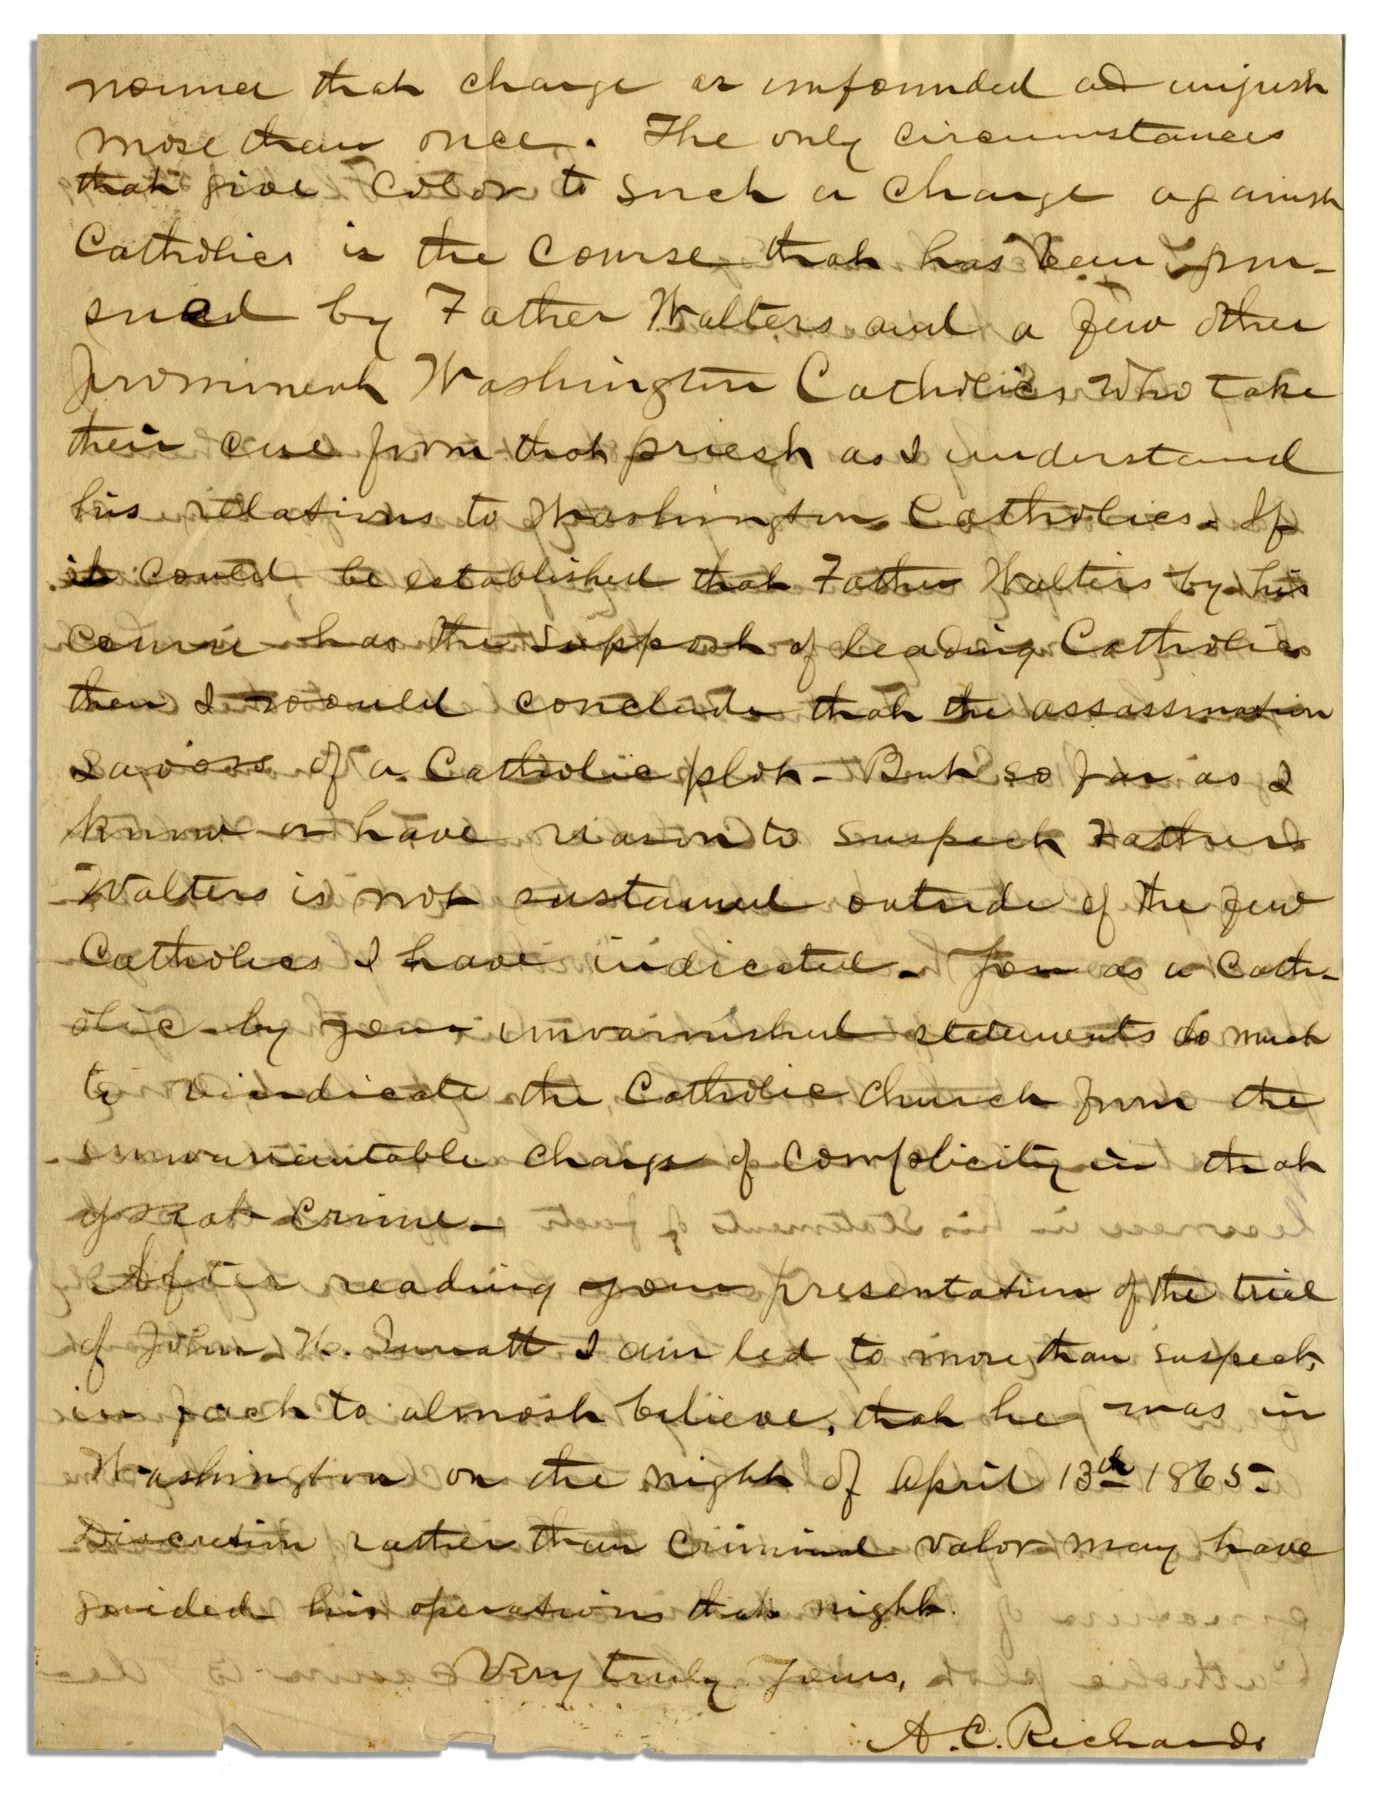 nounce that charge as unfounded and unjust
more than once. The only circumstances
that give color to such a charge against
Catholics is the course that has been pur-
sued by Father Walters and a few other
prominent Washington Catholics who take
their cue from that priest as I understand
his relations to Washington Catholics. If
it could be established that Father Walters by his
course has the support of leading Catholics
then I would conclude that the assassination
was of a Catholic plot - But so far as I
know or have reason to suspect Father
Walters is not sustained outside of the few
Catholics I have indicated - You as a Cath-
olic by your unvarnished statements do much
to vindicate the Catholic Church from the
unwarrantable charge of complicity in that
great crime -
After reading your presentation of the trial
of John H. Surratt I am led to more than suspect,
in fact to almost believe, that he was in
Washington on the night of April 13th 1865 -
Discretion rather than criminal valor may have
guided his operations that night.
Very truly Yours,
A. C. Richards